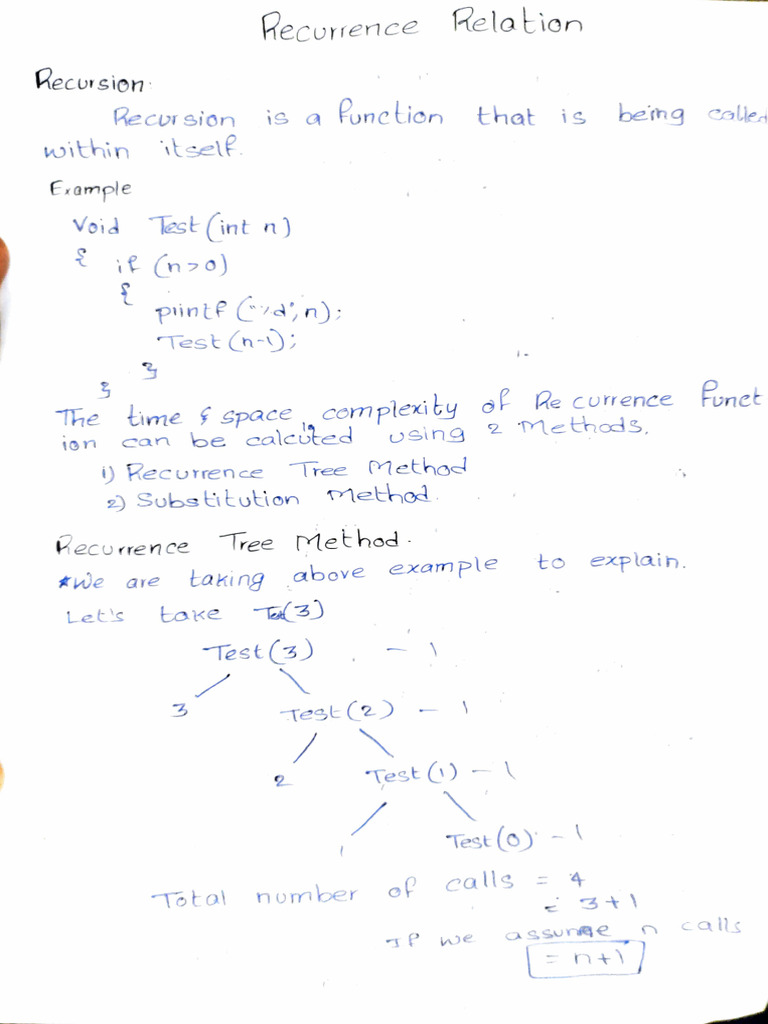 Recurrence Relation
Recursion:
Recursion is a function that is being called
within itself.
Example
Void Test(int n)
{ if (n>0)
{
printf ("%d", n);
Test(n-1);
}
}
The time & space complexity of Recurrence Funct
ion can be calcuted using 2 Methods.
1) Recurrence Tree Method
2) Substitution Method.
Recurrence Tree Method.
*We are taking above example to explain.
Let's take Test(3)
Test(3) - 1
3 Test(2) - 1
2 Test(1) - 1
1 Test(0) - 1
Total number of calls = 4
= 3+1
If we assume n calls
= n+1